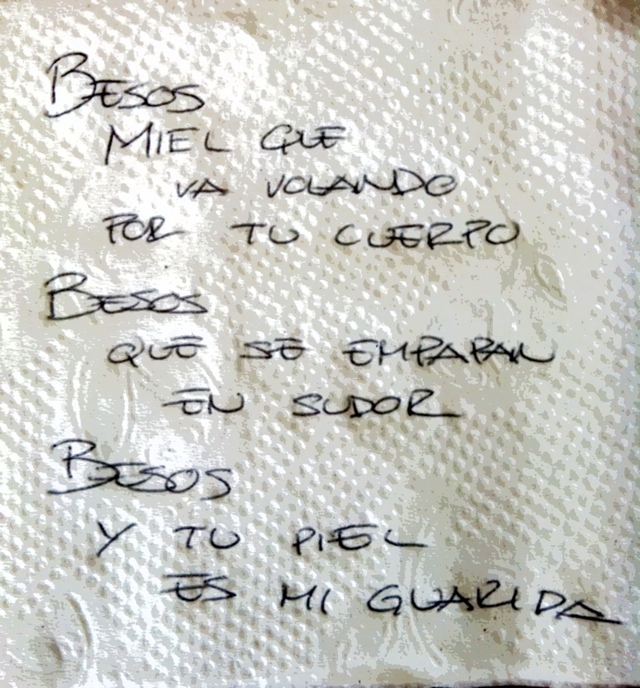 BESOS
MIEL QUE
VA VOLANDO
POR TU CUERPO
BESOS
QUE SE EMPAPAN
EN SUDOR
BESOS
Y TU PIEL
ES MI GUARIDA